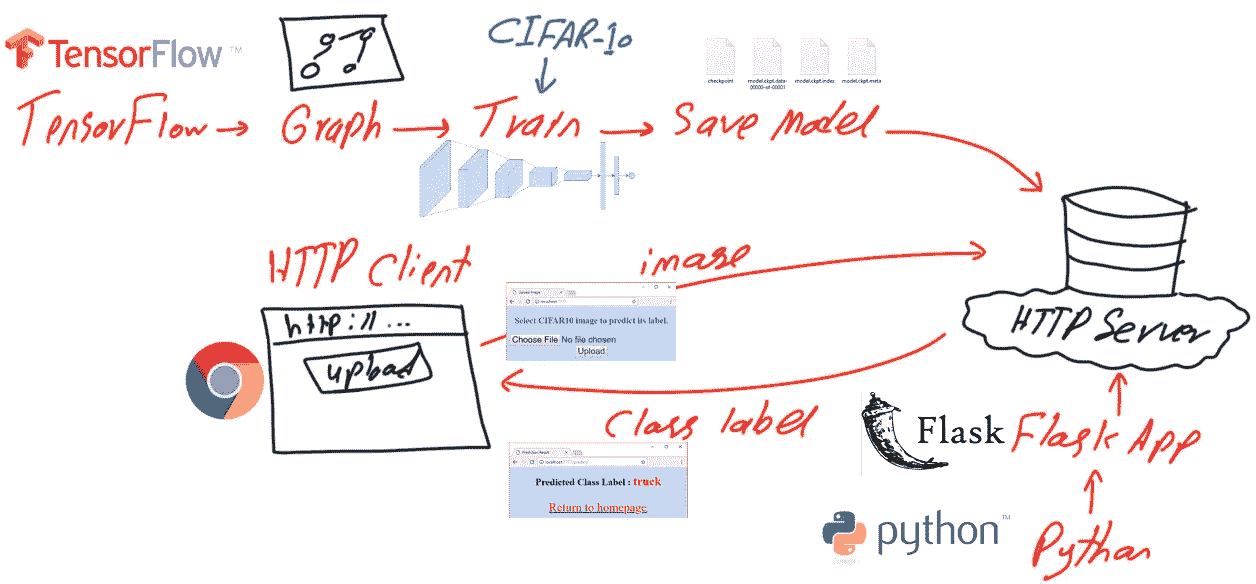 TensorFlow™
CIFAR-10
checkpoint
model.ckpt.data-
00000-of-00001
model.ckpt.index
model.ckpt.meta
TensorFlow → Graph → Train → Save Model
HTTP Client
image
http://...
upload
Upload Image
Select CIFAR10 image to predict its label.
Choose File No file chosen
Upload
HTTP Server
Class label
Prediction Result
Predicted Class Label : truck
Return to homepage
Flask
Flask App
python™
Python